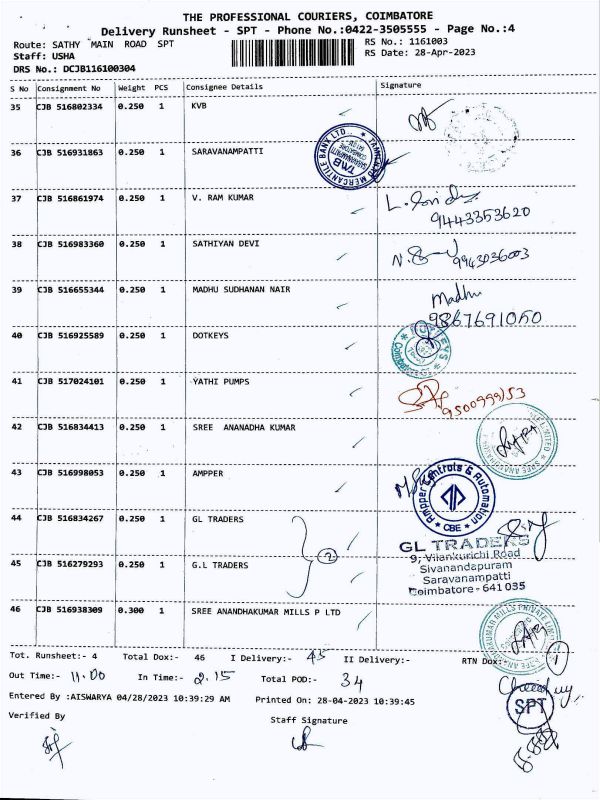 THE PROFESSIONAL COURIERS, COIMBATORE
Delivery Runsheet - SPT - Phone No.:0422-3505555 - Page No.:4
Route: SATHY MAIN ROAD SPT
RS No.: 1161003
Staff: USHA
RS Date: 28-Apr-2023
DRS No.: DCJB116100304
S No Consignment No Weight PCS Consignee Details Signature
35 CJB 516802334 0.250 1 KVB
36 CJB 516931863 0.250 1 SARAVANAMPATTI
TAMILNAD MERCANTILE BANK LTD.
TMB
37 CJB 516861974 0.250 1 V. RAM KUMAR
9443353620
38 CJB 516983360 0.250 1 SATHIYAN DEVI
9943036003
39 CJB 516655344 0.250 1 MADHU SUDHANAN NAIR
Madhu
9867691050
40 CJB 516925589 0.250 1 DOTKEYS
41 CJB 517024101 0.250 1 YATHI PUMPS
42 CJB 516834413 0.250 1 SREE ANANADHA KUMAR
43 CJB 516998053 0.250 1 AMPPER
Ampper Controls & Automation
CBE
44 CJB 516834267 0.250 1 GL TRADERS
2
GL TRADERS
9, Vilankurichi Road
Sivanandapuram
Saravanampatti
Coimbatore - 641 035
45 CJB 516279293 0.250 1 G.L TRADERS
46 CJB 516938309 0.300 1 SREE ANANDHAKUMAR MILLS P LTD
Tot. Runsheet:- 4 Total Dox:- 46 I Delivery:- 45 II Delivery:- RTN Dox:- 1
Out Time:- 11.00 In Time:- 2.15 Total POD:- 34
Entered By :AISWARYA 04/28/2023 10:39:29 AM Printed On: 28-04-2023 10:39:45
SPT
Verified By Staff Signature